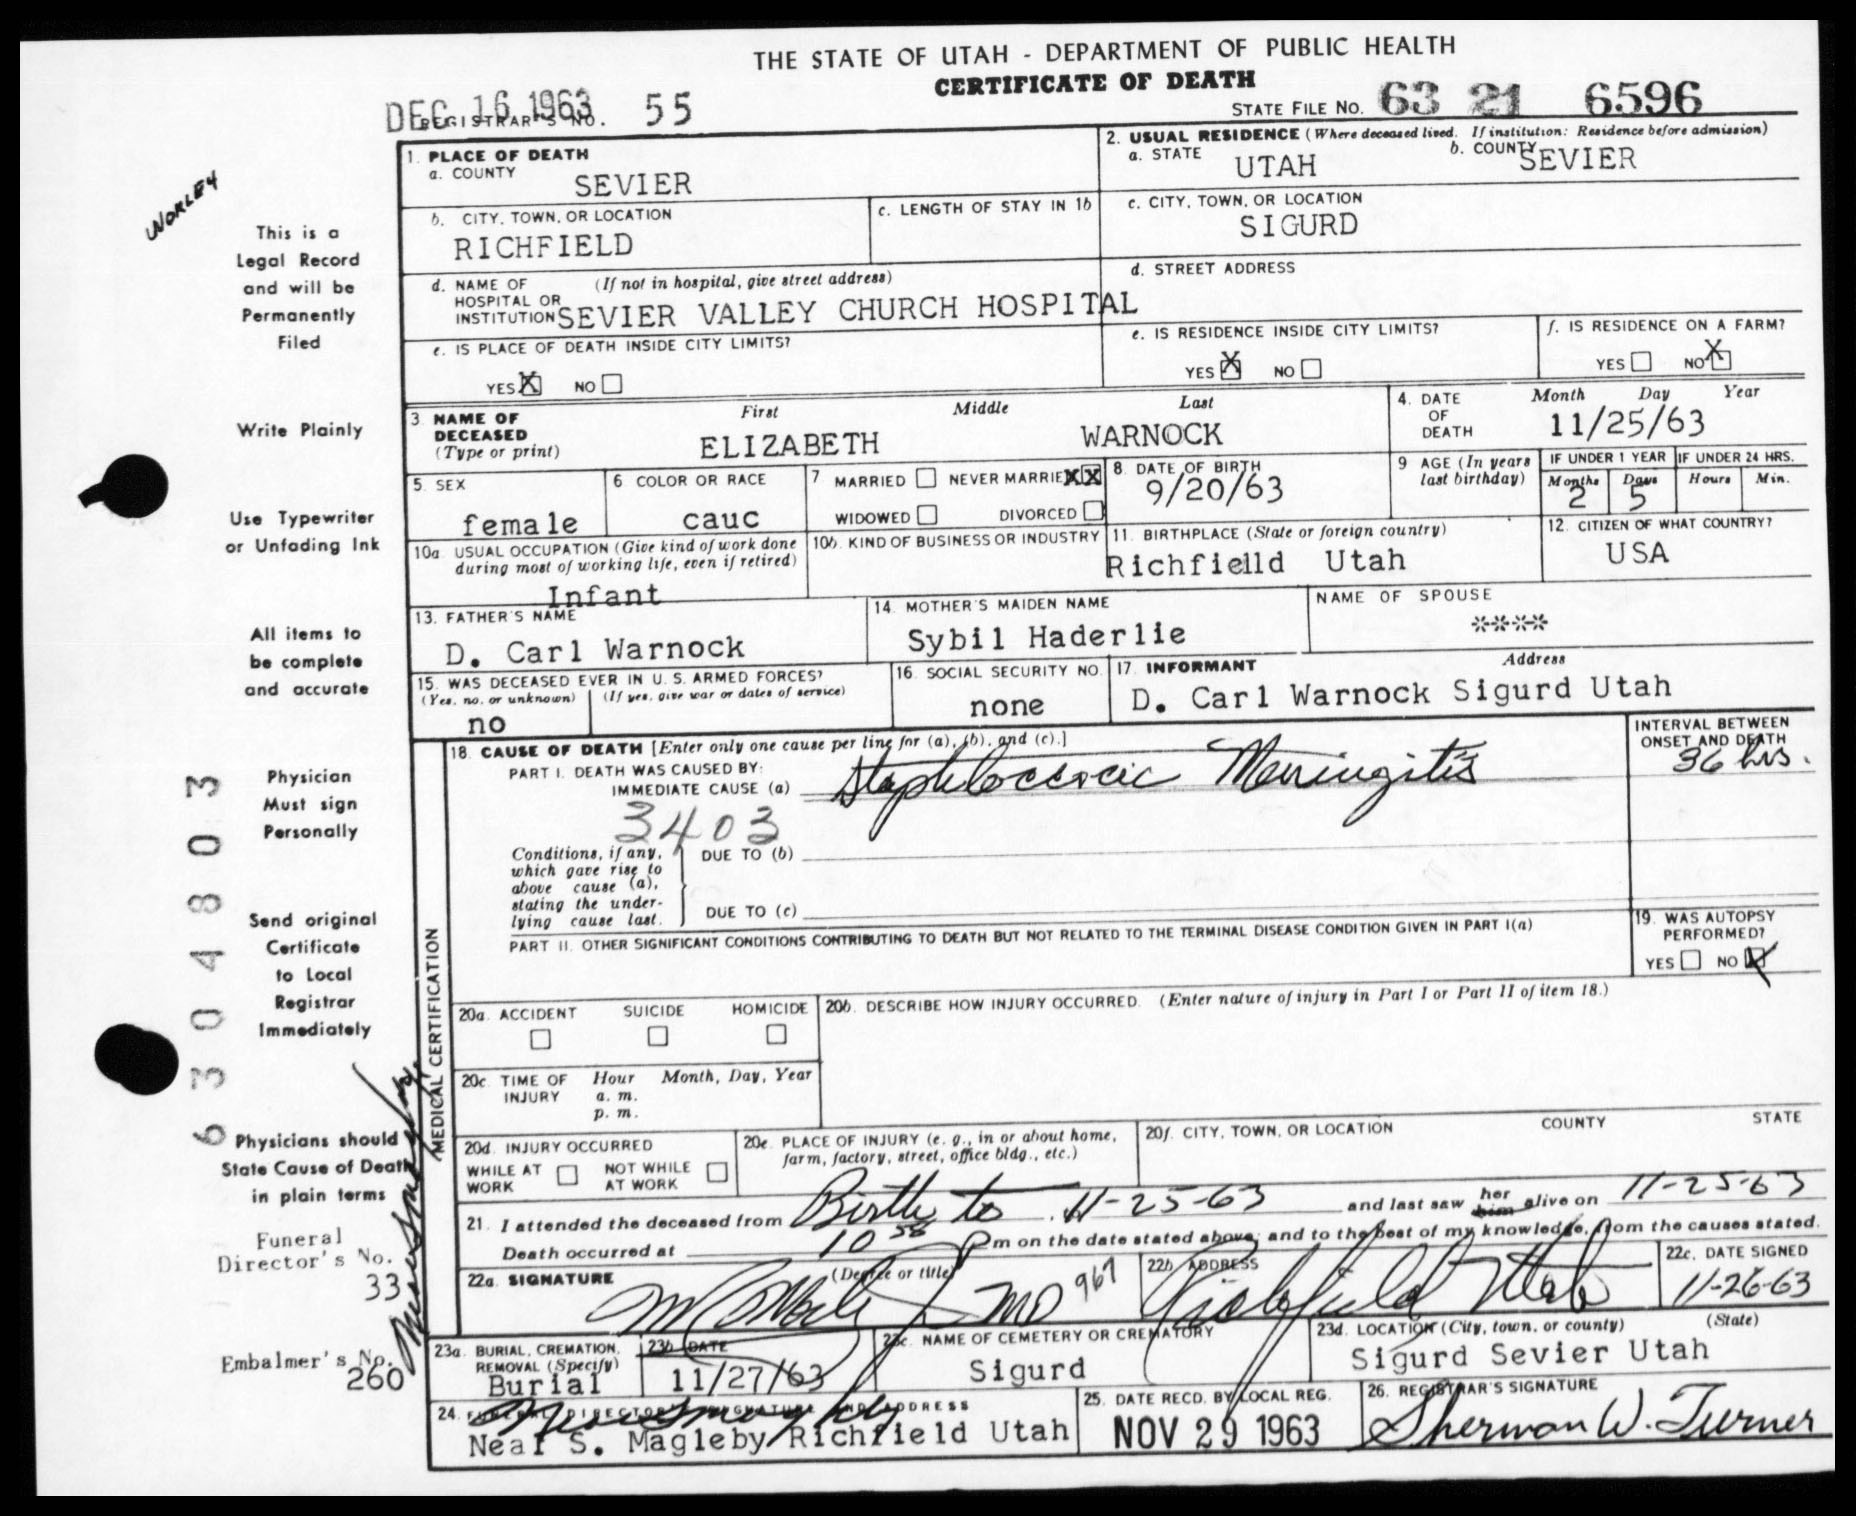 THE STATE OF UTAH - DEPARTMENT OF PUBLIC HEALTH
CERTIFICATE OF DEATH
DEC 16 1963
REGISTRAR'S NO. 55
STATE FILE NO. 63 21 6596
WORLEY
This is a
Legal Record
and will be
Permanently
Filed
Write Plainly
Use Typewriter
or Unfading Ink
All items to
be complete
and accurate
Physician
Must sign
Personally
Send original
Certificate
to Local
Registrar
Immediately
Physicians should
State Cause of Death
in plain terms
Funeral
Director's No.
33
Embalmer's No.
260
6304803
1. PLACE OF DEATH
a. COUNTY
SEVIER
2. USUAL RESIDENCE (Where deceased lived. If institution: Residence before admission)
a. STATE UTAH b. COUNTY SEVIER
b. CITY, TOWN, OR LOCATION
RICHFIELD
c. LENGTH OF STAY IN 1b
c. CITY, TOWN, OR LOCATION
SIGURD
d. NAME OF (If not in hospital, give street address)
HOSPITAL OR
INSTITUTION SEVIER VALLEY CHURCH HOSPITAL
d. STREET ADDRESS
e. IS PLACE OF DEATH INSIDE CITY LIMITS?
YES X NO
e. IS RESIDENCE INSIDE CITY LIMITS?
YES X NO
f. IS RESIDENCE ON A FARM?
YES NO X
3. NAME OF First Middle Last
DECEASED
(Type or print) ELIZABETH WARNOCK
4. DATE Month Day Year
OF
DEATH 11/25/63
5. SEX
female
6. COLOR OR RACE
cauc
7. MARRIED NEVER MARRIED XX
WIDOWED DIVORCED
8. DATE OF BIRTH
9/20/63
9 AGE (In years
last birthday)
IF UNDER 1 YEAR
Months Days
2 5
IF UNDER 24 HRS.
Hours Min.
10a. USUAL OCCUPATION (Give kind of work done
during most of working life, even if retired)
Infant
10b. KIND OF BUSINESS OR INDUSTRY
11. BIRTHPLACE (State or foreign country)
Richfielld Utah
12. CITIZEN OF WHAT COUNTRY?
USA
13. FATHER'S NAME
D. Carl Warnock
14. MOTHER'S MAIDEN NAME
Sybil Haderlie
NAME OF SPOUSE
****
15. WAS DECEASED EVER IN U. S. ARMED FORCES?
(Yes, no, or unknown) (If yes, give war or dates of service)
no
16. SOCIAL SECURITY NO.
none
17. INFORMANT Address
D. Carl Warnock Sigurd Utah
MEDICAL CERTIFICATION
18. CAUSE OF DEATH [Enter only one cause per line for (a), (b), and (c).]
PART I. DEATH WAS CAUSED BY:
IMMEDIATE CAUSE (a) Staphlococcic Meningitis
INTERVAL BETWEEN
ONSET AND DEATH
36 hrs.
3403
Conditions, if any,
which gave rise to
above cause (a),
stating the under-
lying cause last.
DUE TO (b)
DUE TO (c)
PART II. OTHER SIGNIFICANT CONDITIONS CONTRIBUTING TO DEATH BUT NOT RELATED TO THE TERMINAL DISEASE CONDITION GIVEN IN PART I(a)
19. WAS AUTOPSY
PERFORMED?
YES NO X
20a. ACCIDENT SUICIDE HOMICIDE
20b. DESCRIBE HOW INJURY OCCURRED. (Enter nature of injury in Part I or Part II of item 18.)
20c. TIME OF Hour Month, Day, Year
INJURY a. m.
p. m.
20d. INJURY OCCURRED
WHILE AT NOT WHILE
WORK AT WORK
20e. PLACE OF INJURY (e. g., in or about home,
farm, factory, street, office bldg., etc.)
20f. CITY, TOWN, OR LOCATION COUNTY STATE
21. I attended the deceased from Birth to 11-25-63 and last saw her him alive on 11-25-63
Death occurred at 10 P m on the date stated above; and to the best of my knowledge, from the causes stated.
22a. SIGNATURE (Degree or title)
MD 967
22b. ADDRESS
Richfield Utah
22c. DATE SIGNED
11-26-63
23a. BURIAL, CREMATION,
REMOVAL (Specify)
Burial
23b. DATE
11/27/63
23c. NAME OF CEMETERY OR CREMATORY
Sigurd
23d. LOCATION (City, town, or county) (State)
Sigurd Sevier Utah
24. FUNERAL DIRECTOR'S SIGNATURE AND ADDRESS
Neal S. Magleby Richfield Utah
25. DATE RECD. BY LOCAL REG.
NOV 29 1963
26. REGISTRAR'S SIGNATURE
Sherman W. Turner